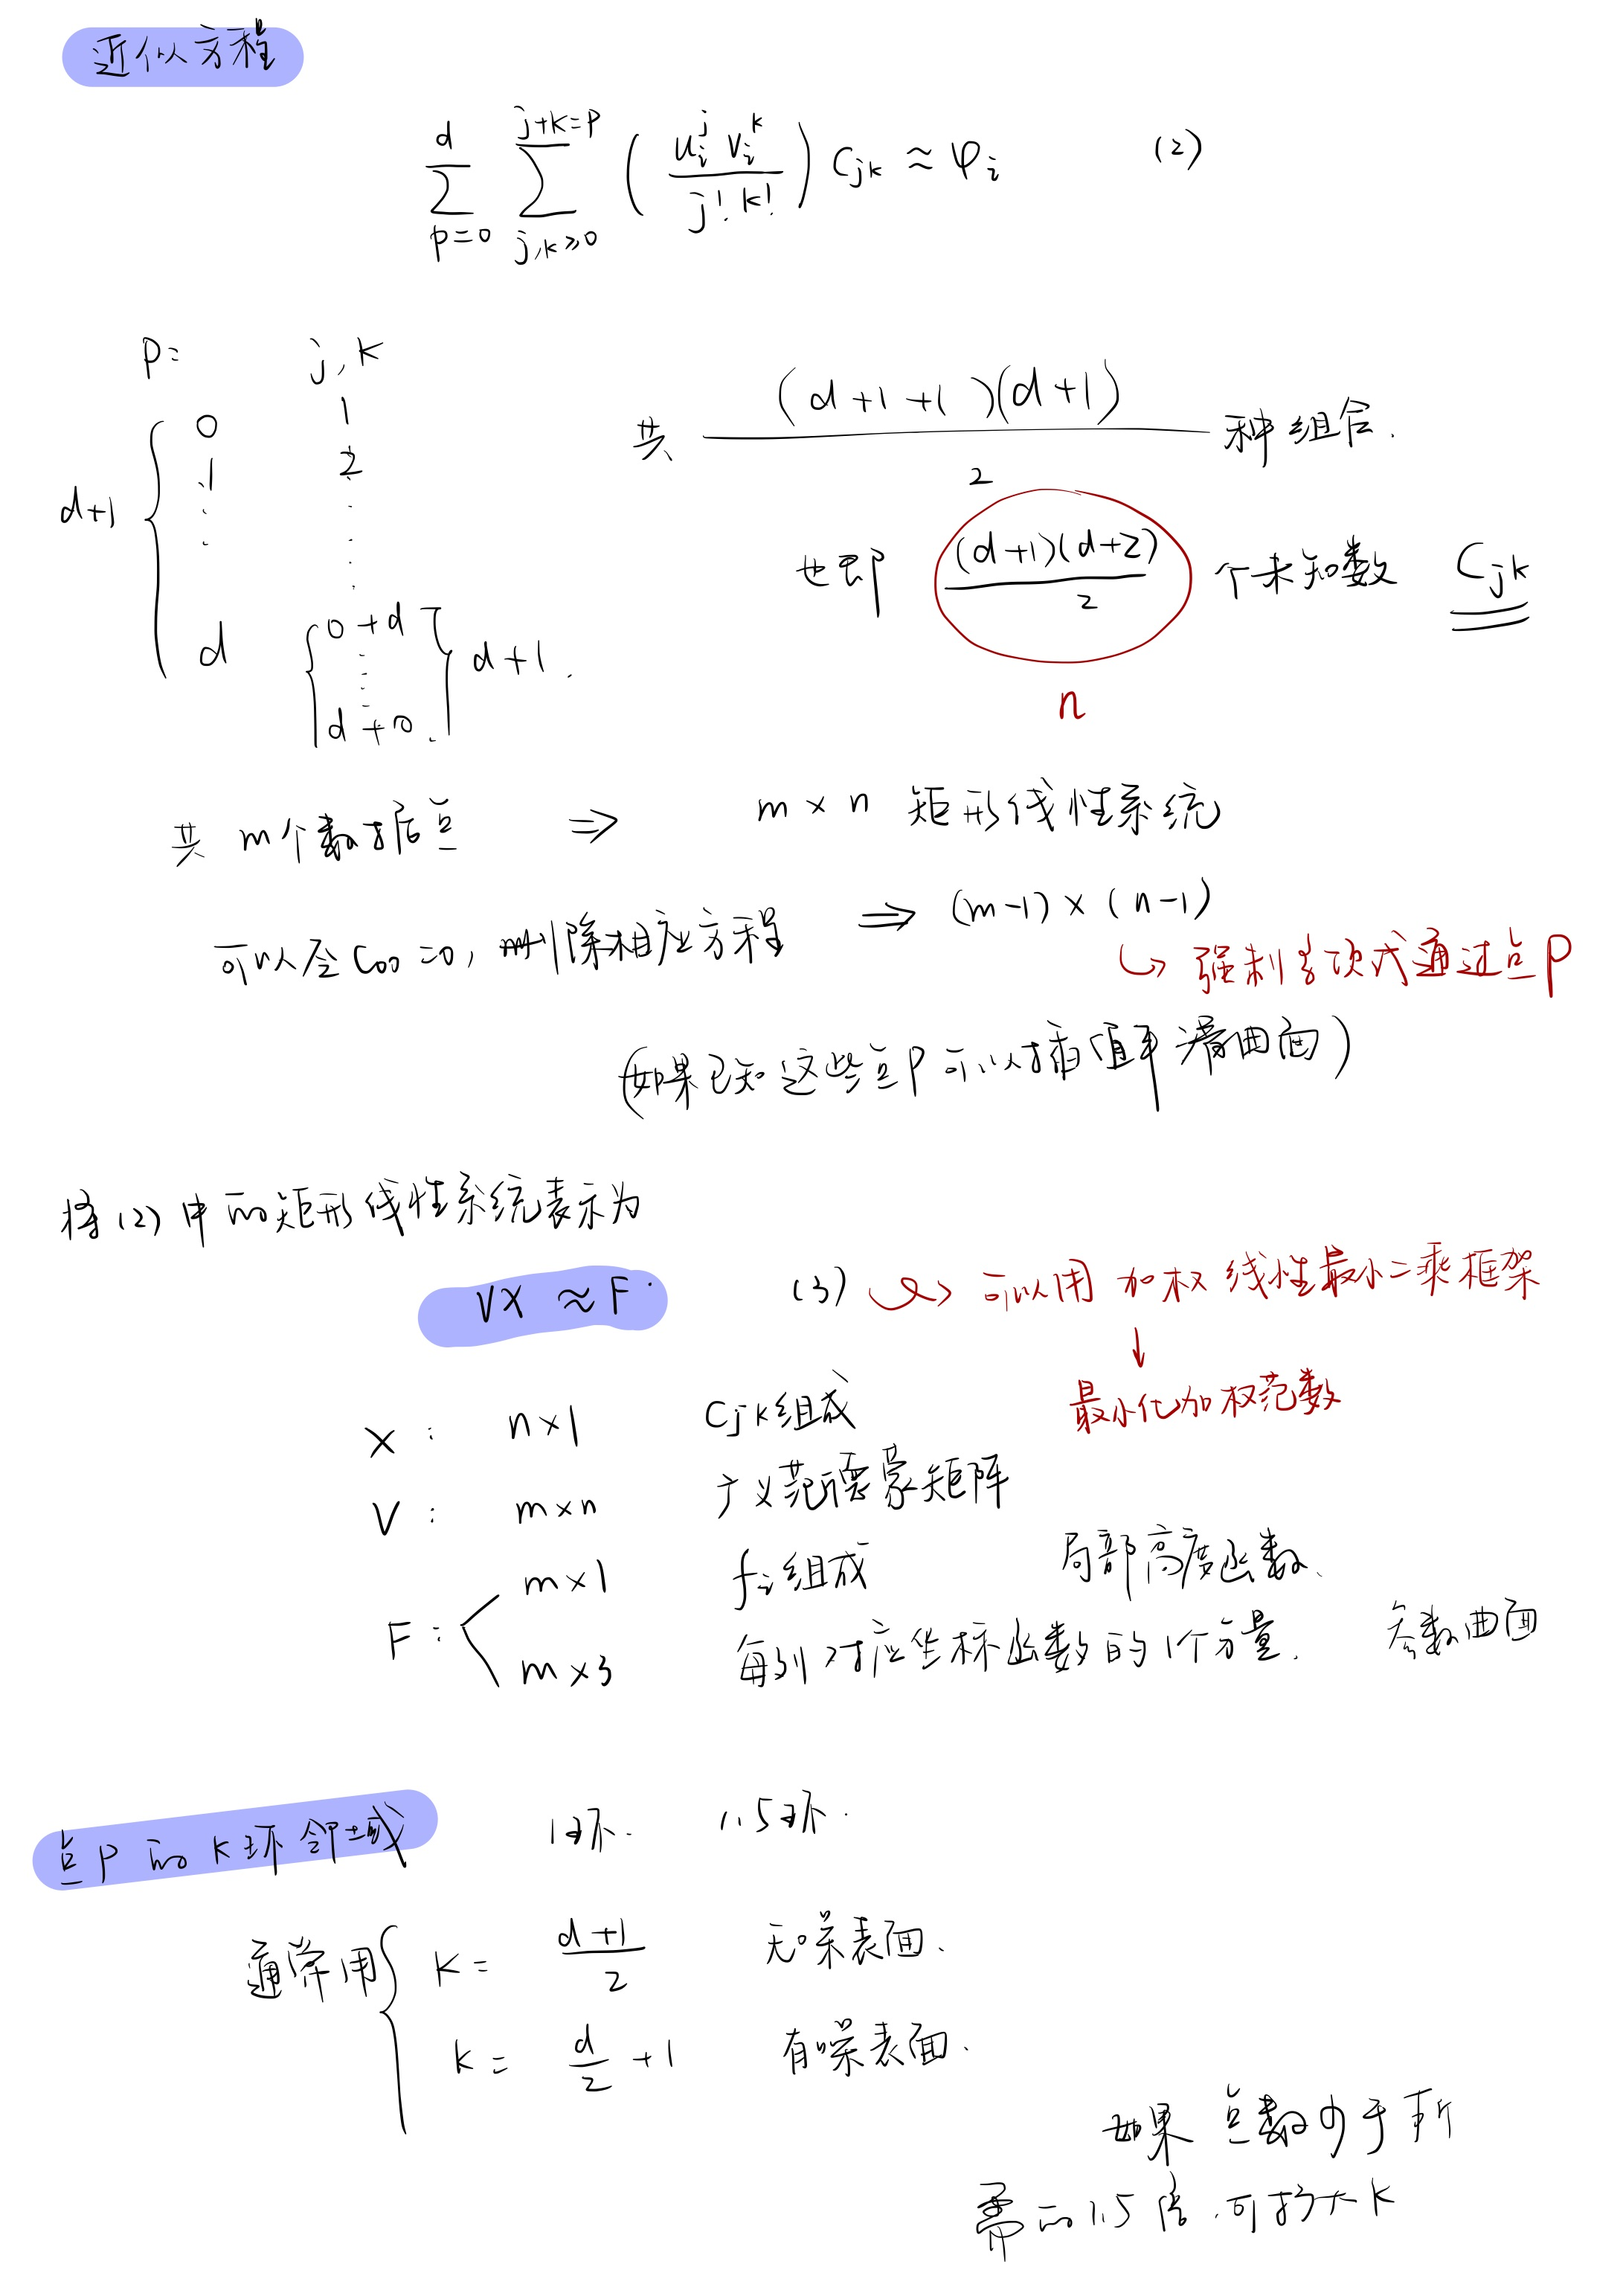 近似方程
$\sum_{p=0}^{d} \sum_{j,k \geq 0}^{j+k=p} \left( \frac{u_i^j v_i^k}{j! k!} \right) C_{jk} \approx \varphi_i$ (2)
p= j,k
0 1
1 2
d+1
d 0+d
d+0
d+1.
共 $\frac{(d+1+1)(d+1)}{2}$ 种组合.
也即 $\frac{(d+1)(d+2)}{2}$ 个未知数 $C_{jk}$
n
共 m个数据点 ⇒ m×n 矩形线性系统
可以令 $C_{00}=0$, 删除相应方程 ⇒ (m-1)×(n-1)
↳ 强制多项式通过点P
(如果已知这些点P可以插值平滑曲面)
将(2)中的矩形线性系统表示为
VX ≈ F. (3) → 可以用 加权线性最小二乘框架
↓
最小化加权范数
X: n×1 Cjk组成
V: m×n 广义范德蒙矩阵
F: m×1 $f_i$组成 局部高度函数、
m×3 每列对应坐标函数的1个分量. 参数曲面
点P的K环邻域 1环. 1.5环.
通常用 { K= $\frac{d+1}{2}$ 无噪表面、
K= $\frac{d}{2}+1$ 有噪表面、
如果点数少于所
需的1.5倍,可扩大K